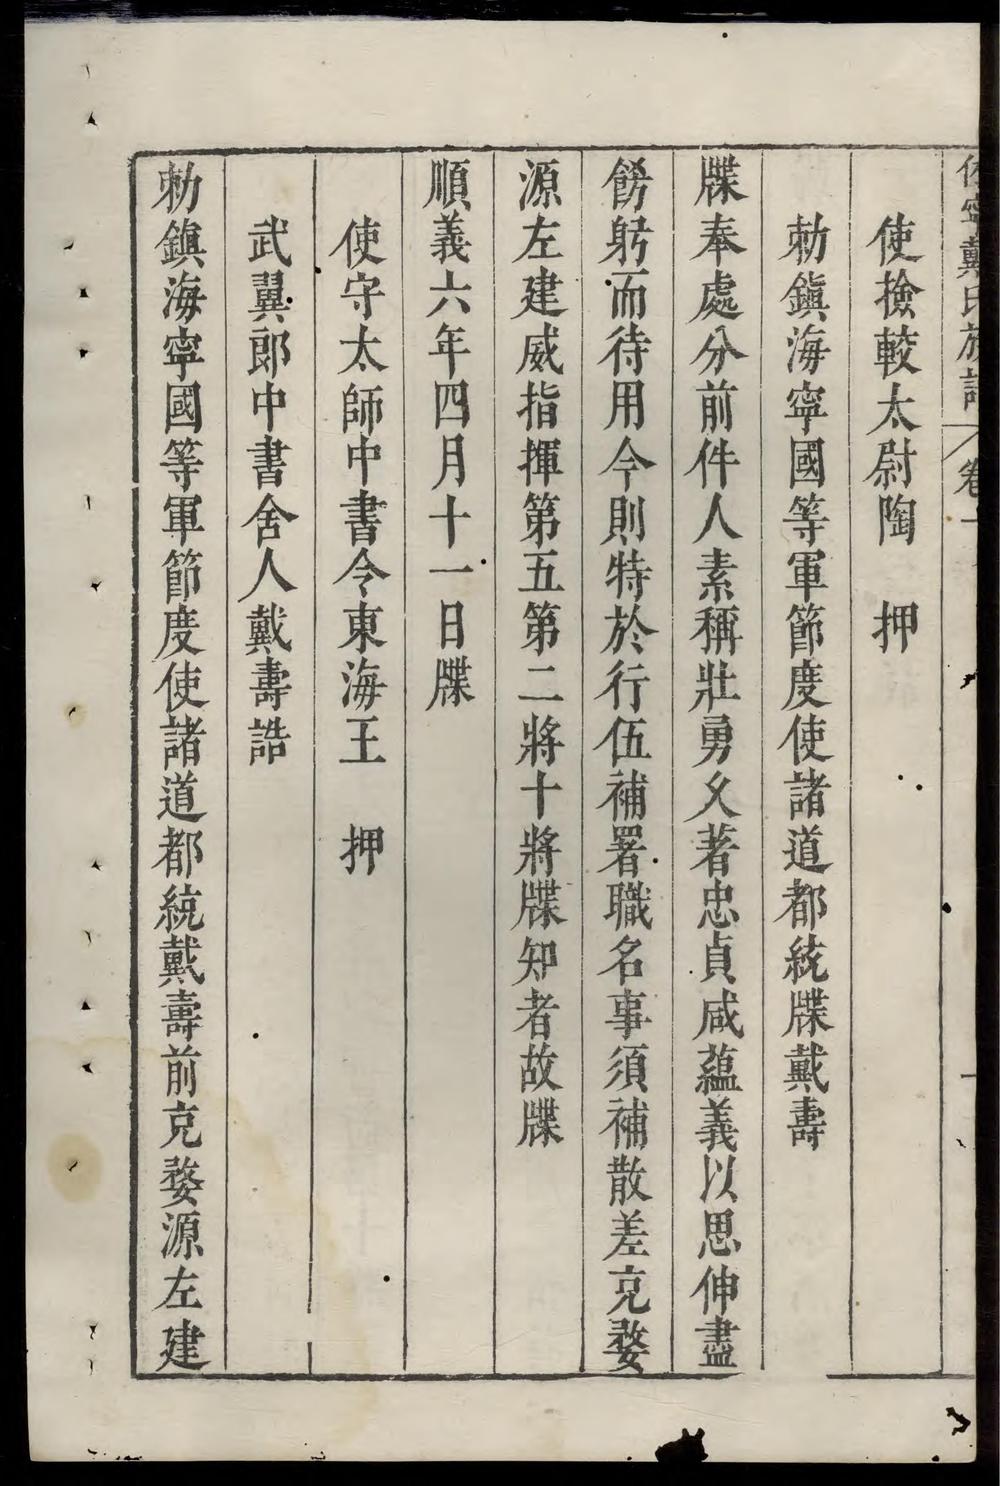 休寧戴氏族譜 卷一
使撿較太尉陶 押
勑鎭海寧國等軍節度使諸道都統牒戴壽
牒奉處分前件人素稱壯勇久著忠貞咸蘊義以思伸盡
餝躬而待用今則特於行伍補署職名事須補散差充婺
源左建威指揮第五第二將十將牒知者故牒
順義六年四月十一日牒
使守太師中書令東海王 押
武翼郎中書舍人戴壽誥
勑鎭海寧國等軍節度使諸道都統戴壽前充婺源左建